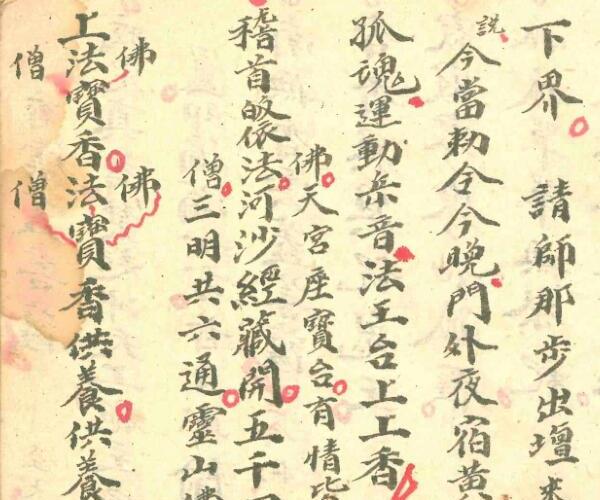 下界 請師那步出壇
說
今當勅令今晚門外夜宿黃
孤魂運動乐音法王台上工香
佛天宮座寶台有情
稽首皈依法河沙經藏開五千
僧三明共六通靈山
佛 佛
上法寶香法寶香供養供養
僧 僧